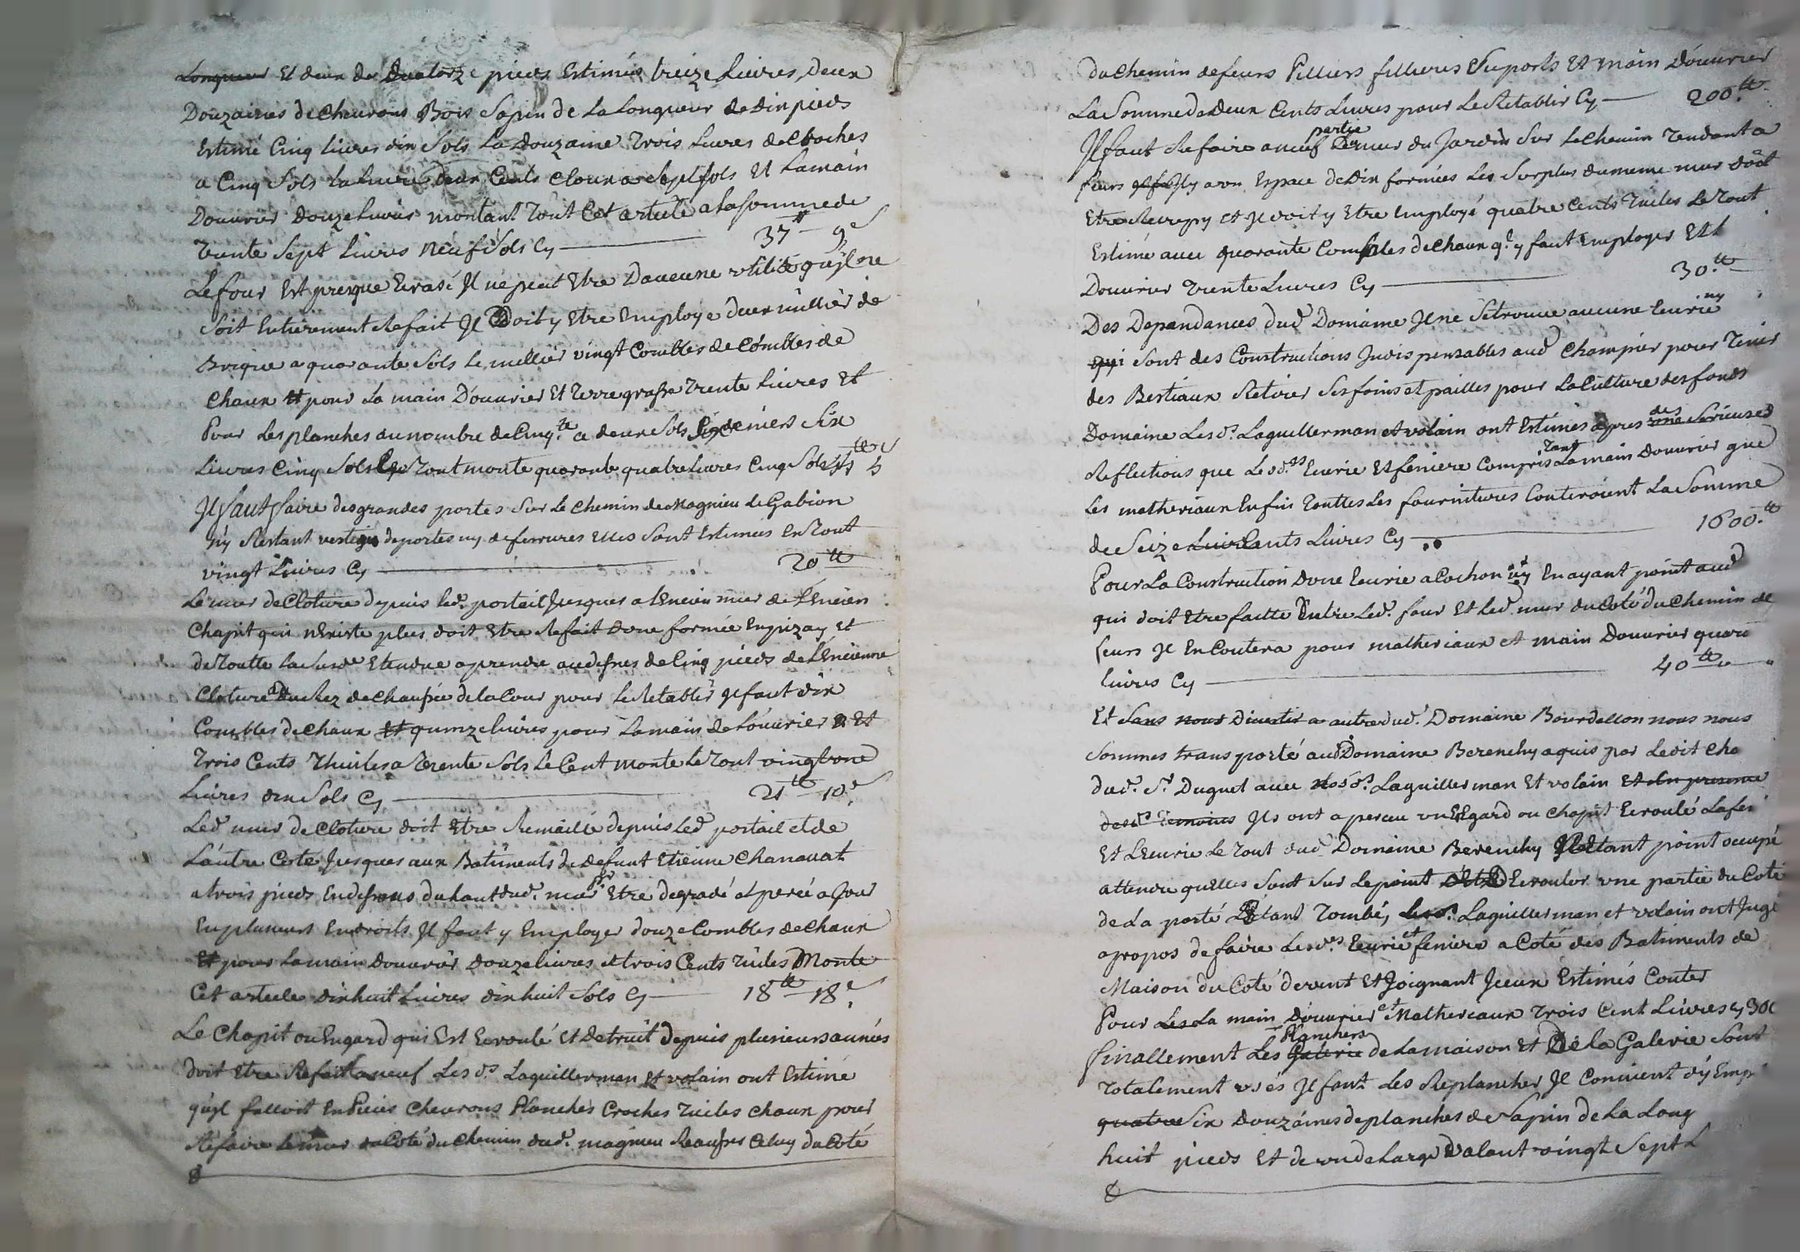 Longueur Et deux de Quatorze pieds Estimés treize Livres, deux
Douzaines de chevrons Bois Sapin de La Longueur de dix pieds
Estimé Cinq livres dix Sols La Douzaine Trois Livres de Croches
a Cinq Sols la Livre deux Cents Cloux a Sept sols Et Lamain
Douvrier Douze Livres montant Tout Cet article a la Somme de
Trente Sept Livres Neuf Sols Cy 37tt 9s
Le four Est presque Ecrasé Il ne peut Etre Daucune utilité qu'il ne
Soit Entierement Refait Il Doit y Etre Employe deux millier de
Brique a quarante Sols Le millier vingt Coubles de Coubles de
chaux Et pour La main Douvrier Et Terre grasse Trente Livres Et
Pour Les planches au nombre de Cinq.te a deux Sols Six deniers Six
Livres Cinq Sols Le Tout monte quarante quatre Livres Cinq Sols 44tt 5s
Il faut faire des grandes portes Sur Le chemin de Magnieu Le Gabion
N'y Restant vestiges de portes ny de ferrures Elles Sont Estimées En Tout
vingt Livres Cy 20tt
Le mur de Cloture depuis led. portail Jusques a l'Encien mur de l'Encien
Chapit qui n'Existe plus doit Etre Refait Dune formée En pizay Et
de Toutte La Susd.e Etendue a prendre au dessus de Cinq pieds de L'Encienne
Cloture du Rez de chaussée de la Cour pour Le Rétablir Il faut dix
Coubles de chaux Et quinze livres pour La main de Louvrier Et
Trois Cents Thuiles a Trente Sols Le Cent monte Le Tout vingt une
Livres dix Sols Cy 21tt 10s
Led. mur de Cloture doit Etre Remaillé depuis Led. portail et de
L'autre Coté Jusques aux Batiments de defunt Etienne Chanavat
a trois pieds En dessous du haut dud. mur pr Etre degradé et percé a Jour
En plusieurs Endroits Il faut y Employer douze Coubles de Chaux
Et pour La main Douvrier Douze livres et trois Cents Tuiles Monte
Cet article dix huit Livres dix huit Sols Cy 18tt 18s
Le Chapit ou Engard qui Est Ecroulé Et Detruit Depuis plusieurs années
Doit Etre Refait a neuf Les srs Laquillerman Et volain ont Estimé
qu'il falloit En Piece Chevrons Planches Croches Tuiles Chaux pour
Refaire Le mur Coté du chemin dud. magnieu Celuy du Coté
du Chemin de feurs Pilliers filieres Suports Et main Douvrier
La Somme de Deux Cents Livres pour Le Retablir Cy 200tt
Il faut Refaire a neuf partie Du mur du Jardin Sur Le Chemin Tendant a
feurs Il y a un Espace de Dix formées Les Surplus du meme mur doit
Etre Recrepy et Il doit y Etre Employé quatre Cents Tuiles Le Tout
Estimé avec quarante Coubles de chaux q.l y faut Employer Et L
Douvrier Trente Livres Cy 30tt
Des Dependances dud. Domaine Il ne Se trouve aucune Ecurie ny
qui Sont des Constructions Indispensables aud. Champier pour Tenir
des Bestiaux Retirer Ses foins et pailles pour La Culture des fonds
Domaine Les srs Laquillerman et volain ont Estimés apres des une Serieuses
Reflections que Les d.es Ecurie Et feniere Compris Tant La main Douvrier que
Les matheriaux Enfin Touttes Les fournitures Couteroient La Somme
de Seize Livres Cents Livres Cy 1600tt
Pour La Construction Dune Ecurie a Cochon N'y En ayant point aud.
qui doit Etre faitte Entre Led. four Et Led. mur du Coté du Chemin de
feurs Il En Coutera pour matheriaux et main Douvrier quara
Livres Cy 40tt
Et Sans nous Divertir a autre dud. Domaine Bourdellon nous nous
Sommes transporté aud. Domaine Berenchy aquis par Ledit Che
dud. Sr Duguet avec Nosd. Laquillerman Et volain Et En presence
desd. Temoins Ils ont aperçu un Engard ou Chapit Ecroulé La fen
Et L'Ecurie Le Tout dud. Domaine Berenchy N'Etant point occupé
attendu quelles Sont Sur Le point Ecrouler une partie du Coté
de La porte Etant Tombé, Les srs Laquillerman et volain ont Jugé
apropos de faire Lesd.es Ecurie et feniere a Coté des Batiments de
Maison du Coté devent Et Joignant Iceux Estimés Couter
Pour La main Douvrier et Matheriaux Trois Cent Livres cy 300
finallement Les Planchers Galerie de La maison Et De la Galerie Sont
Totalement usés Il faut Les Replancher Il Convient d'y Emp
quatre Six Douzaines de planches de Sapin de La Long
huit pieds Et de un de Large Valant vingt Sept L